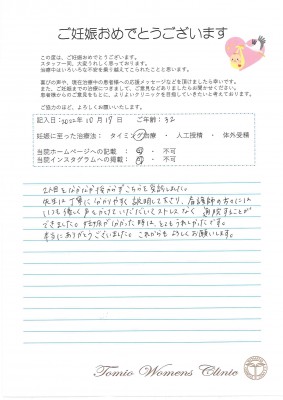 ご妊娠おめでとうございます
この度は、ご妊娠おめでとうございます。
スタッフ一同、大変うれしく思っております。
治療中はいろいろな不安を乗り越えてこられたことと思います。
喜びの声や、現在治療中の患者様への応援メッセージなどを頂けましたら幸いです。
また、ご妊娠までの治療につきまして、ご意見などありましたらお聞かせください。
患者様からのご意見をもとに、よりよいクリニックを目指していきたいと考えております。
ご協力のほど、よろしくお願いします。
記入日:2022年10月17日 ご年齢:32
妊娠に至った治療法: タイミング治療 ・ 人工授精 ・ 体外受精
当院ホームページへの記載: 可 ・ 不可
当院インスタグラムへの掲載: 可 ・ 不可
2人目をなかなか授からずこちらを受診しました。
先生は丁寧に分かりやすく説明して下さり、看護師の方々には
いつも優しく声をかけていただいてストレスなく通院することが
できました。妊娠が分かった時は、とてもうれしかったです。
本当にありがとうございました。これからもよろしくお願いします。
Tomio Womens Clinic